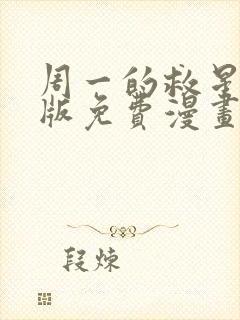 周一的救星
版免费漫畫
段炼